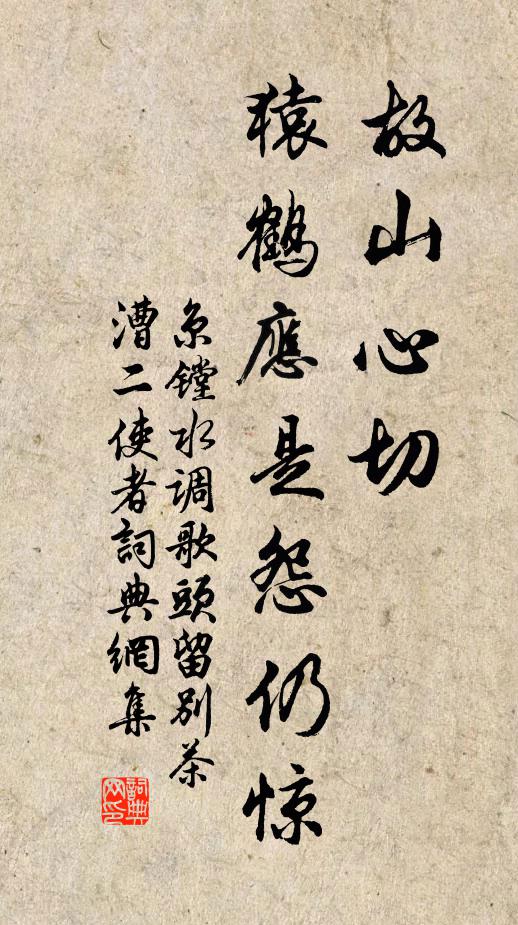 故山心切
猿鶴應是怨仍惊
京镗水调歌頭留別茶
漕二使者詞典網集
詞典
网印